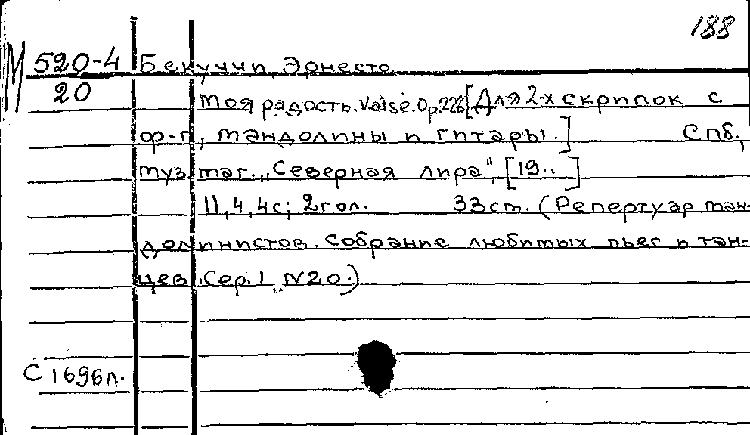 188
М 520-4
20
Бекуччи, Эрнесто
Моя радость. Valse. Op.222 [Для 2-х скрипок с
ф-п, мандолины и гитары.] Спб.,
муз. маг. „Северная лира", [19..]
11, 4, 4с; 2 гол. 33 ст. (Репертуар ман-
долинистов. Собрание любимых пьес и тан-
цев. Сер. 1 N 20.)
С 1696п.